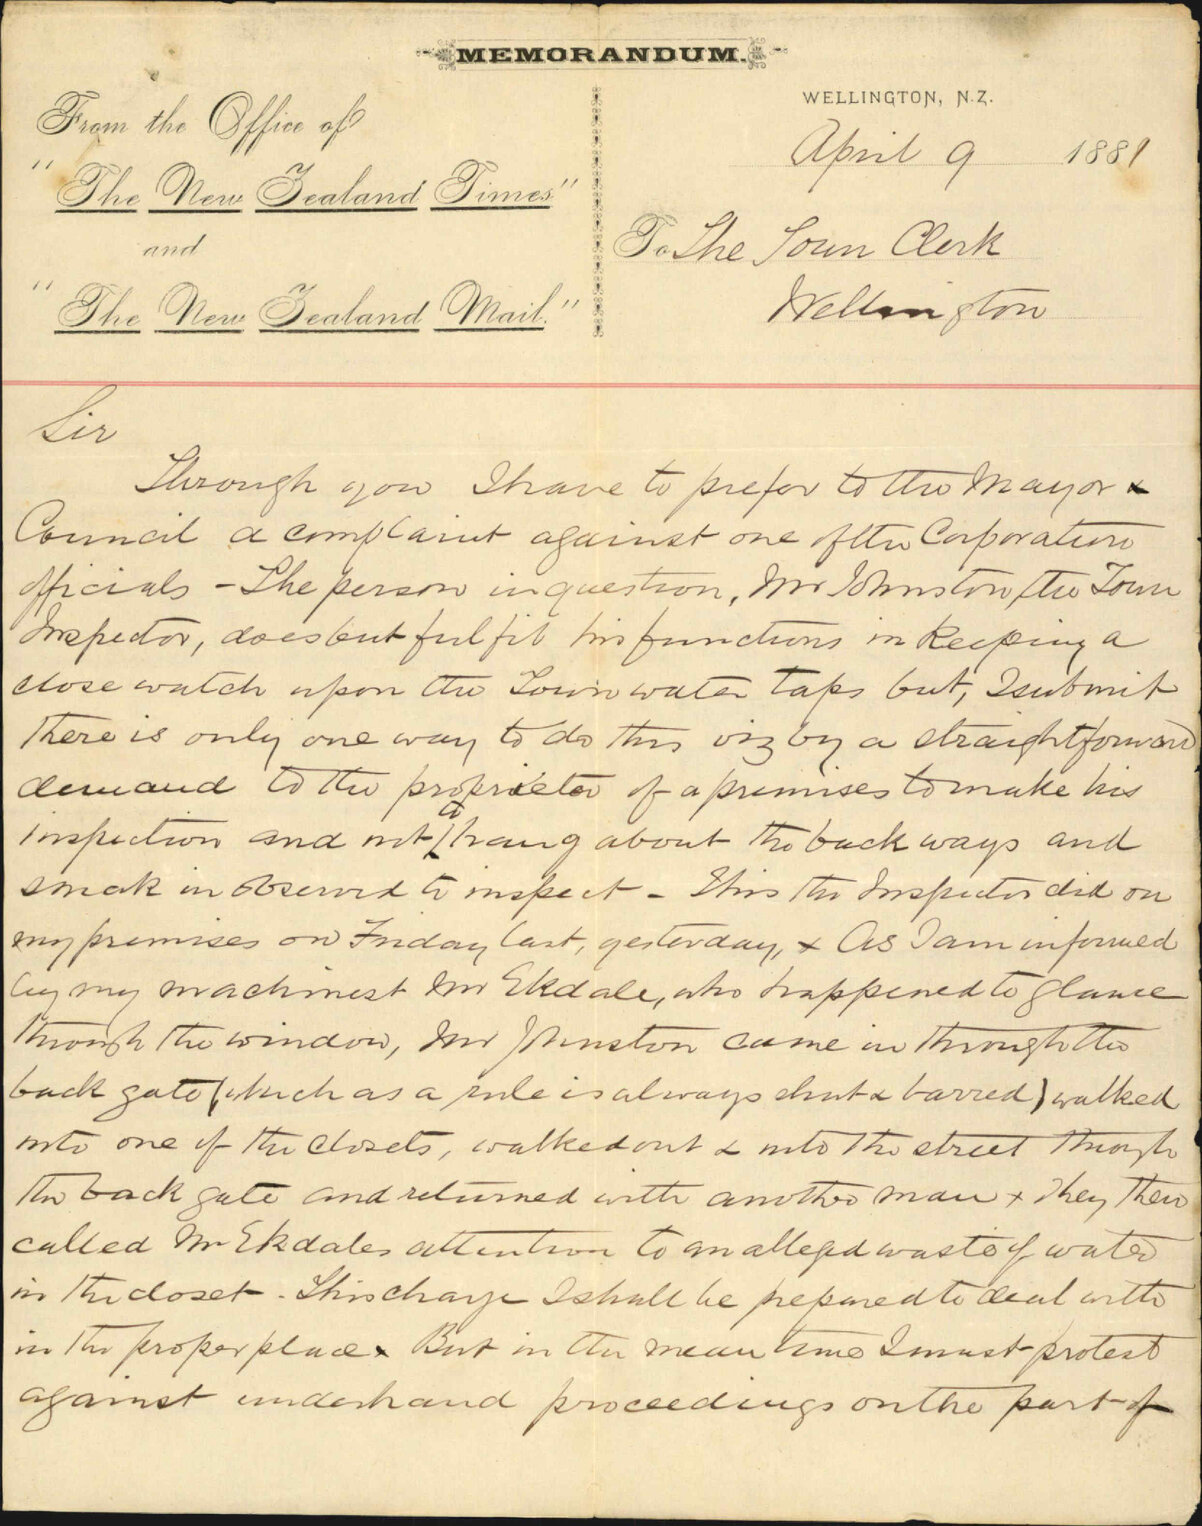 MEMORANDUM.
From the Office of
"The New Zealand Times"
and
"The New Zealand Mail."
WELLINGTON, N.Z.
April 9 1881
To The Town Clerk
Wellington
Sir
Through you I have to prefer to the Mayor &
Council a complaint against one of the Corporation
officials - The person in question, Mr Johnston, the Town
Inspector, does but fulfil his functions in keeping a
close watch upon the Town water taps but, I submit
there is only one way to do this viz by a straightforward
demand to the proprietor of a premises to make his
inspection and not to hang about the back ways and
sneak in observed to inspect - This the Inspector did on
my premises on Friday last, yesterday, & As I am informed
by my machinest Mr Ekdale, who happened to glance
through the window, Mr Johnston came in through the
back gate (which as a rule is always shut & barred) walked
into one of the closets, walked out & into the street through
the back gate and returned with another man & they then
called Mr Ekdales attention to an alleged waste of water
in the closet - This charge I shall be prepared to deal with
in the proper place & But in the mean time I must protest
against underhand proceedings on the part of